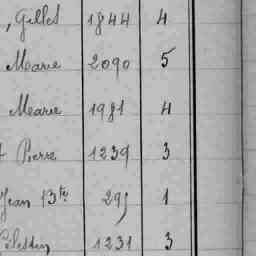 , Gilles 1844 4
Marie 2090 5
Marie 1981 4
Pierre 1239 3
Jean Bte 295 1
Célestin 1231 3